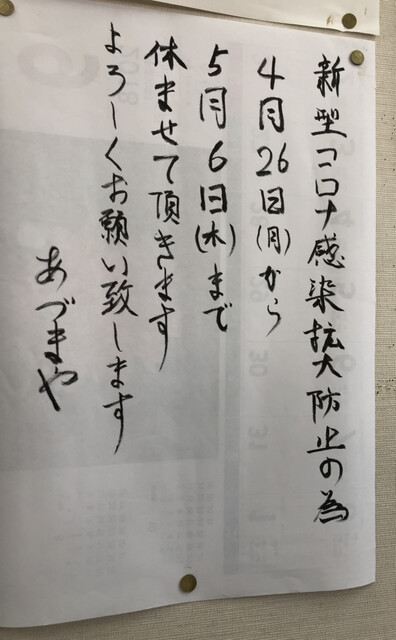 新型コロナ感染拡大防止の為
4月26日(月)から
5月6日(木)まで
休ませて頂きます
よろしくお願い致します
あづまや